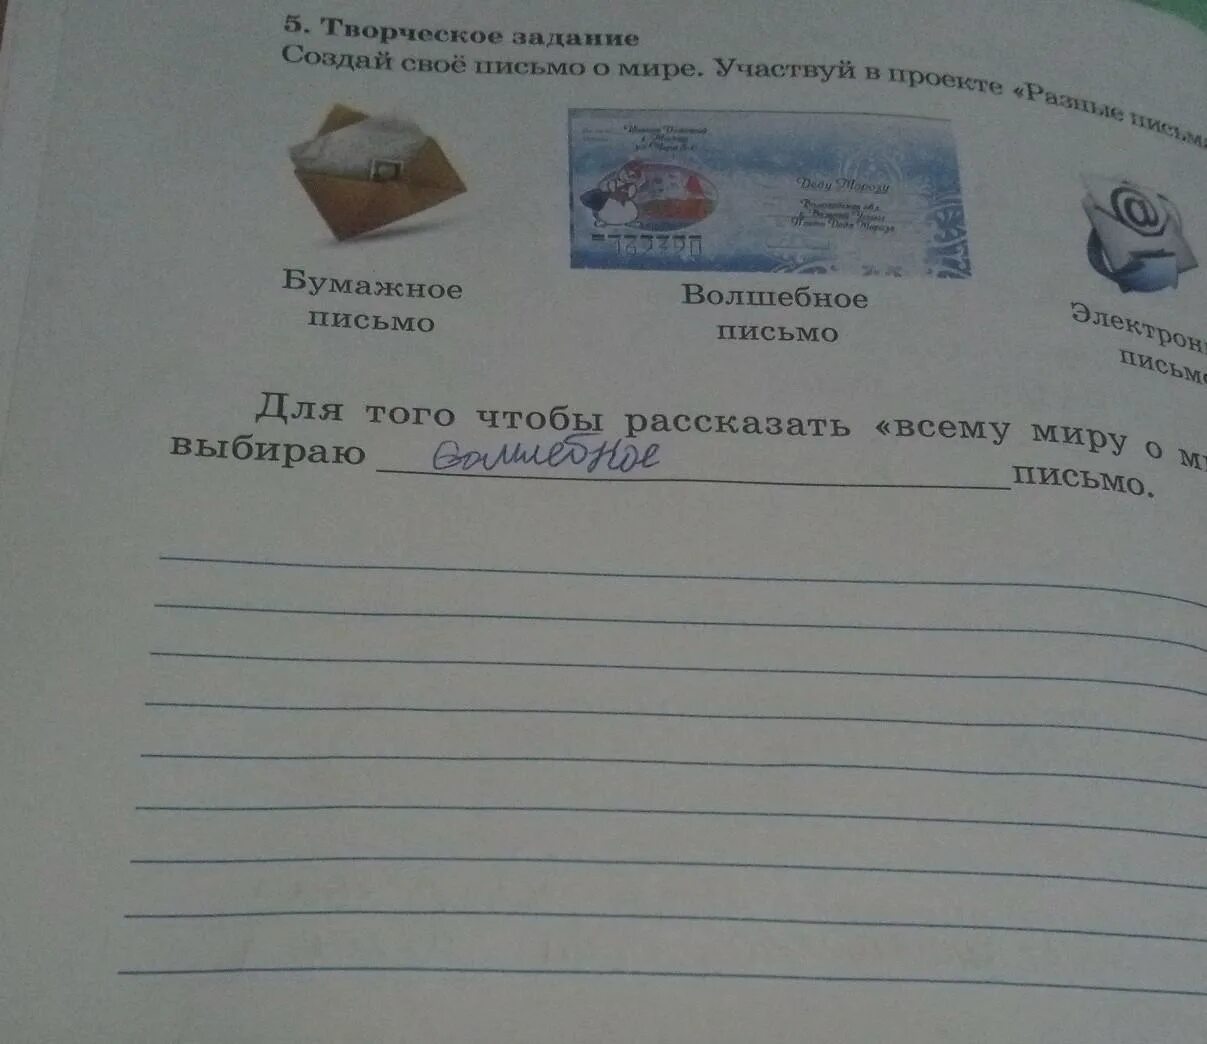 5. Творческое задание
Создай своё письмо о мире. Участвуй в проекте «Разные письма
Деду Морозу
Бумажное
письмо
Волшебное
письмо
Электрон
письмо
Для того чтобы рассказать «всему миру о ми
выбираю волшебное письмо.